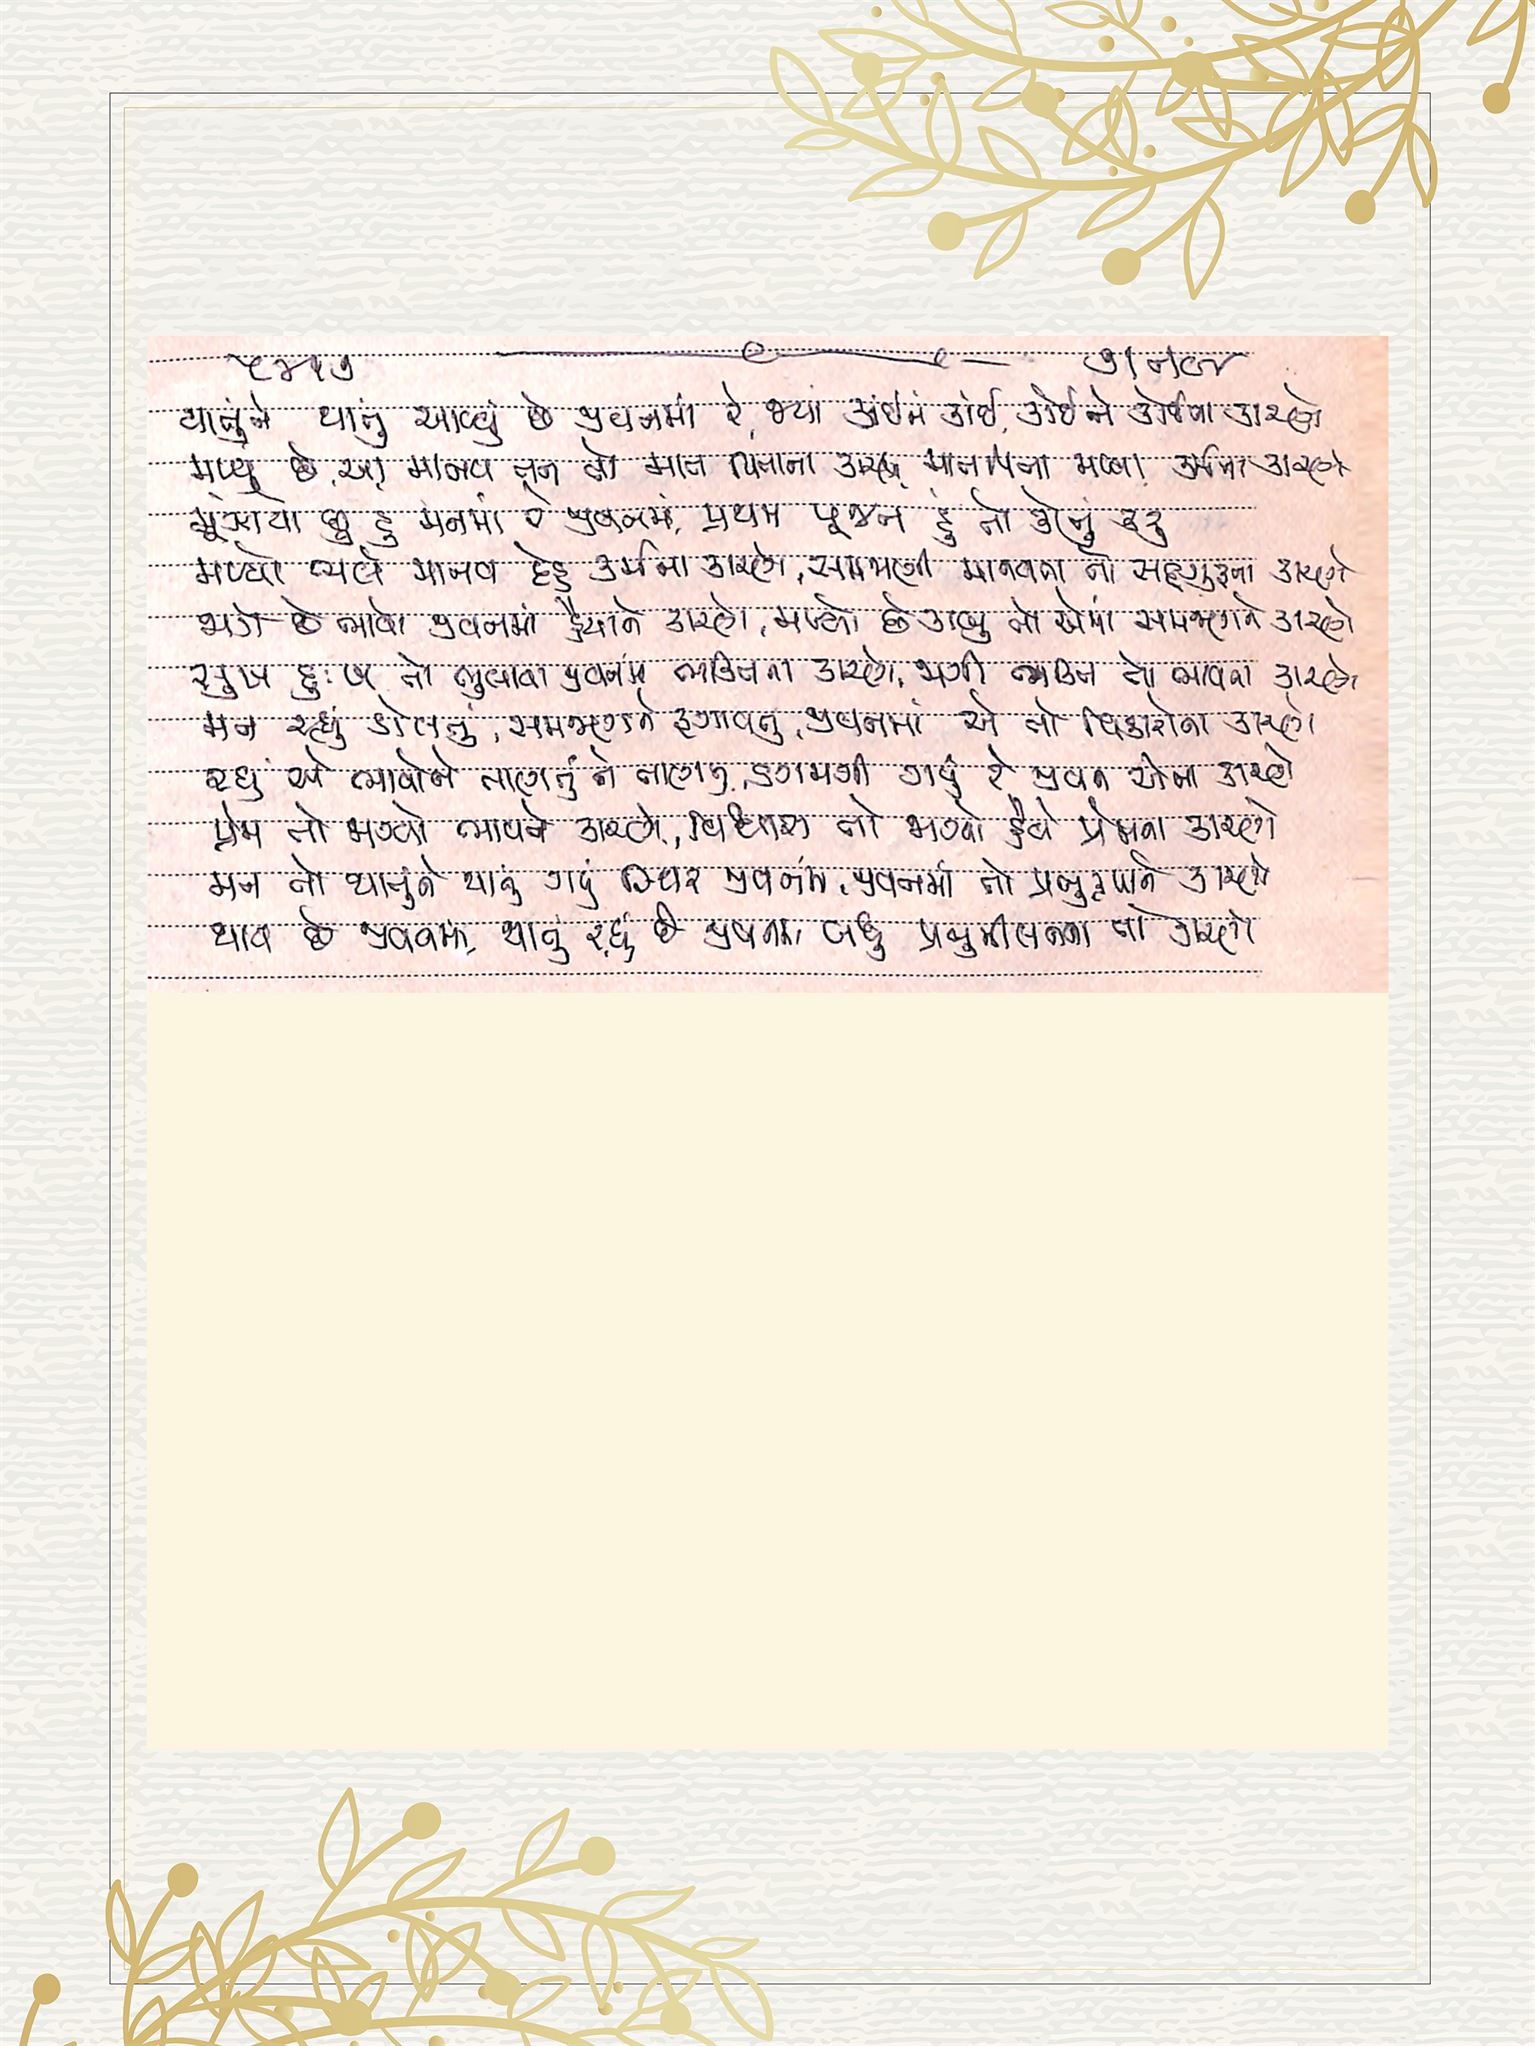 થાતુંને થાતું આવ્યું છે જીવનમાં રે, જ્યાં કાંઈને કાંઈ, કોઈને કોઈના કારણે
મળ્યું છે આ માનવ તન તો માત પિતાના કારણે, માતપિતા મળ્યા કર્મના કારણે
મૂંઝાયો છું હું મનમાં રે જીવનમાં, પ્રથમ પૂજન હું તો કોનું કરું
મળ્યો ભલે માનવ દેહ કર્મના કારણે, સમજાણી માનવતા તો સદ્દગુરુના કારણે
જાગે છે ભાવો જીવનમાં હૈયાને કારણે, મળ્યો છે કાબૂ તો એમાં સમજણને કારણે
સુખ દુઃખ તો ભુલાયા જીવનમાં ભક્તિના કારણે, જાગી ભક્તિ તો ભાવના કારણે
મન રહ્યું ડોલતું, સમજણને ડગાવતું, જીવનમાં એ તો વિકારોના કારણે
રહ્યું એ ભાવોને તાણતું ને તાણતું, ડગમગી ગયું રે જીવન એના કારણે
પ્રેમ તો જાગ્યો ભાવને કારણે, વિશ્વાસ તો જાગ્યો હૈયે પ્રેમના કારણે
મન તો થાતુંને થાતું ગયું સ્થિર જીવનમાં, જીવનમાં તો પ્રભુકૃપાને કારણે
થાય છે જીવનમાં, થાતું રહ્યું છે જીવનમાં, બધું પ્રભુમિલનના તો કારણે